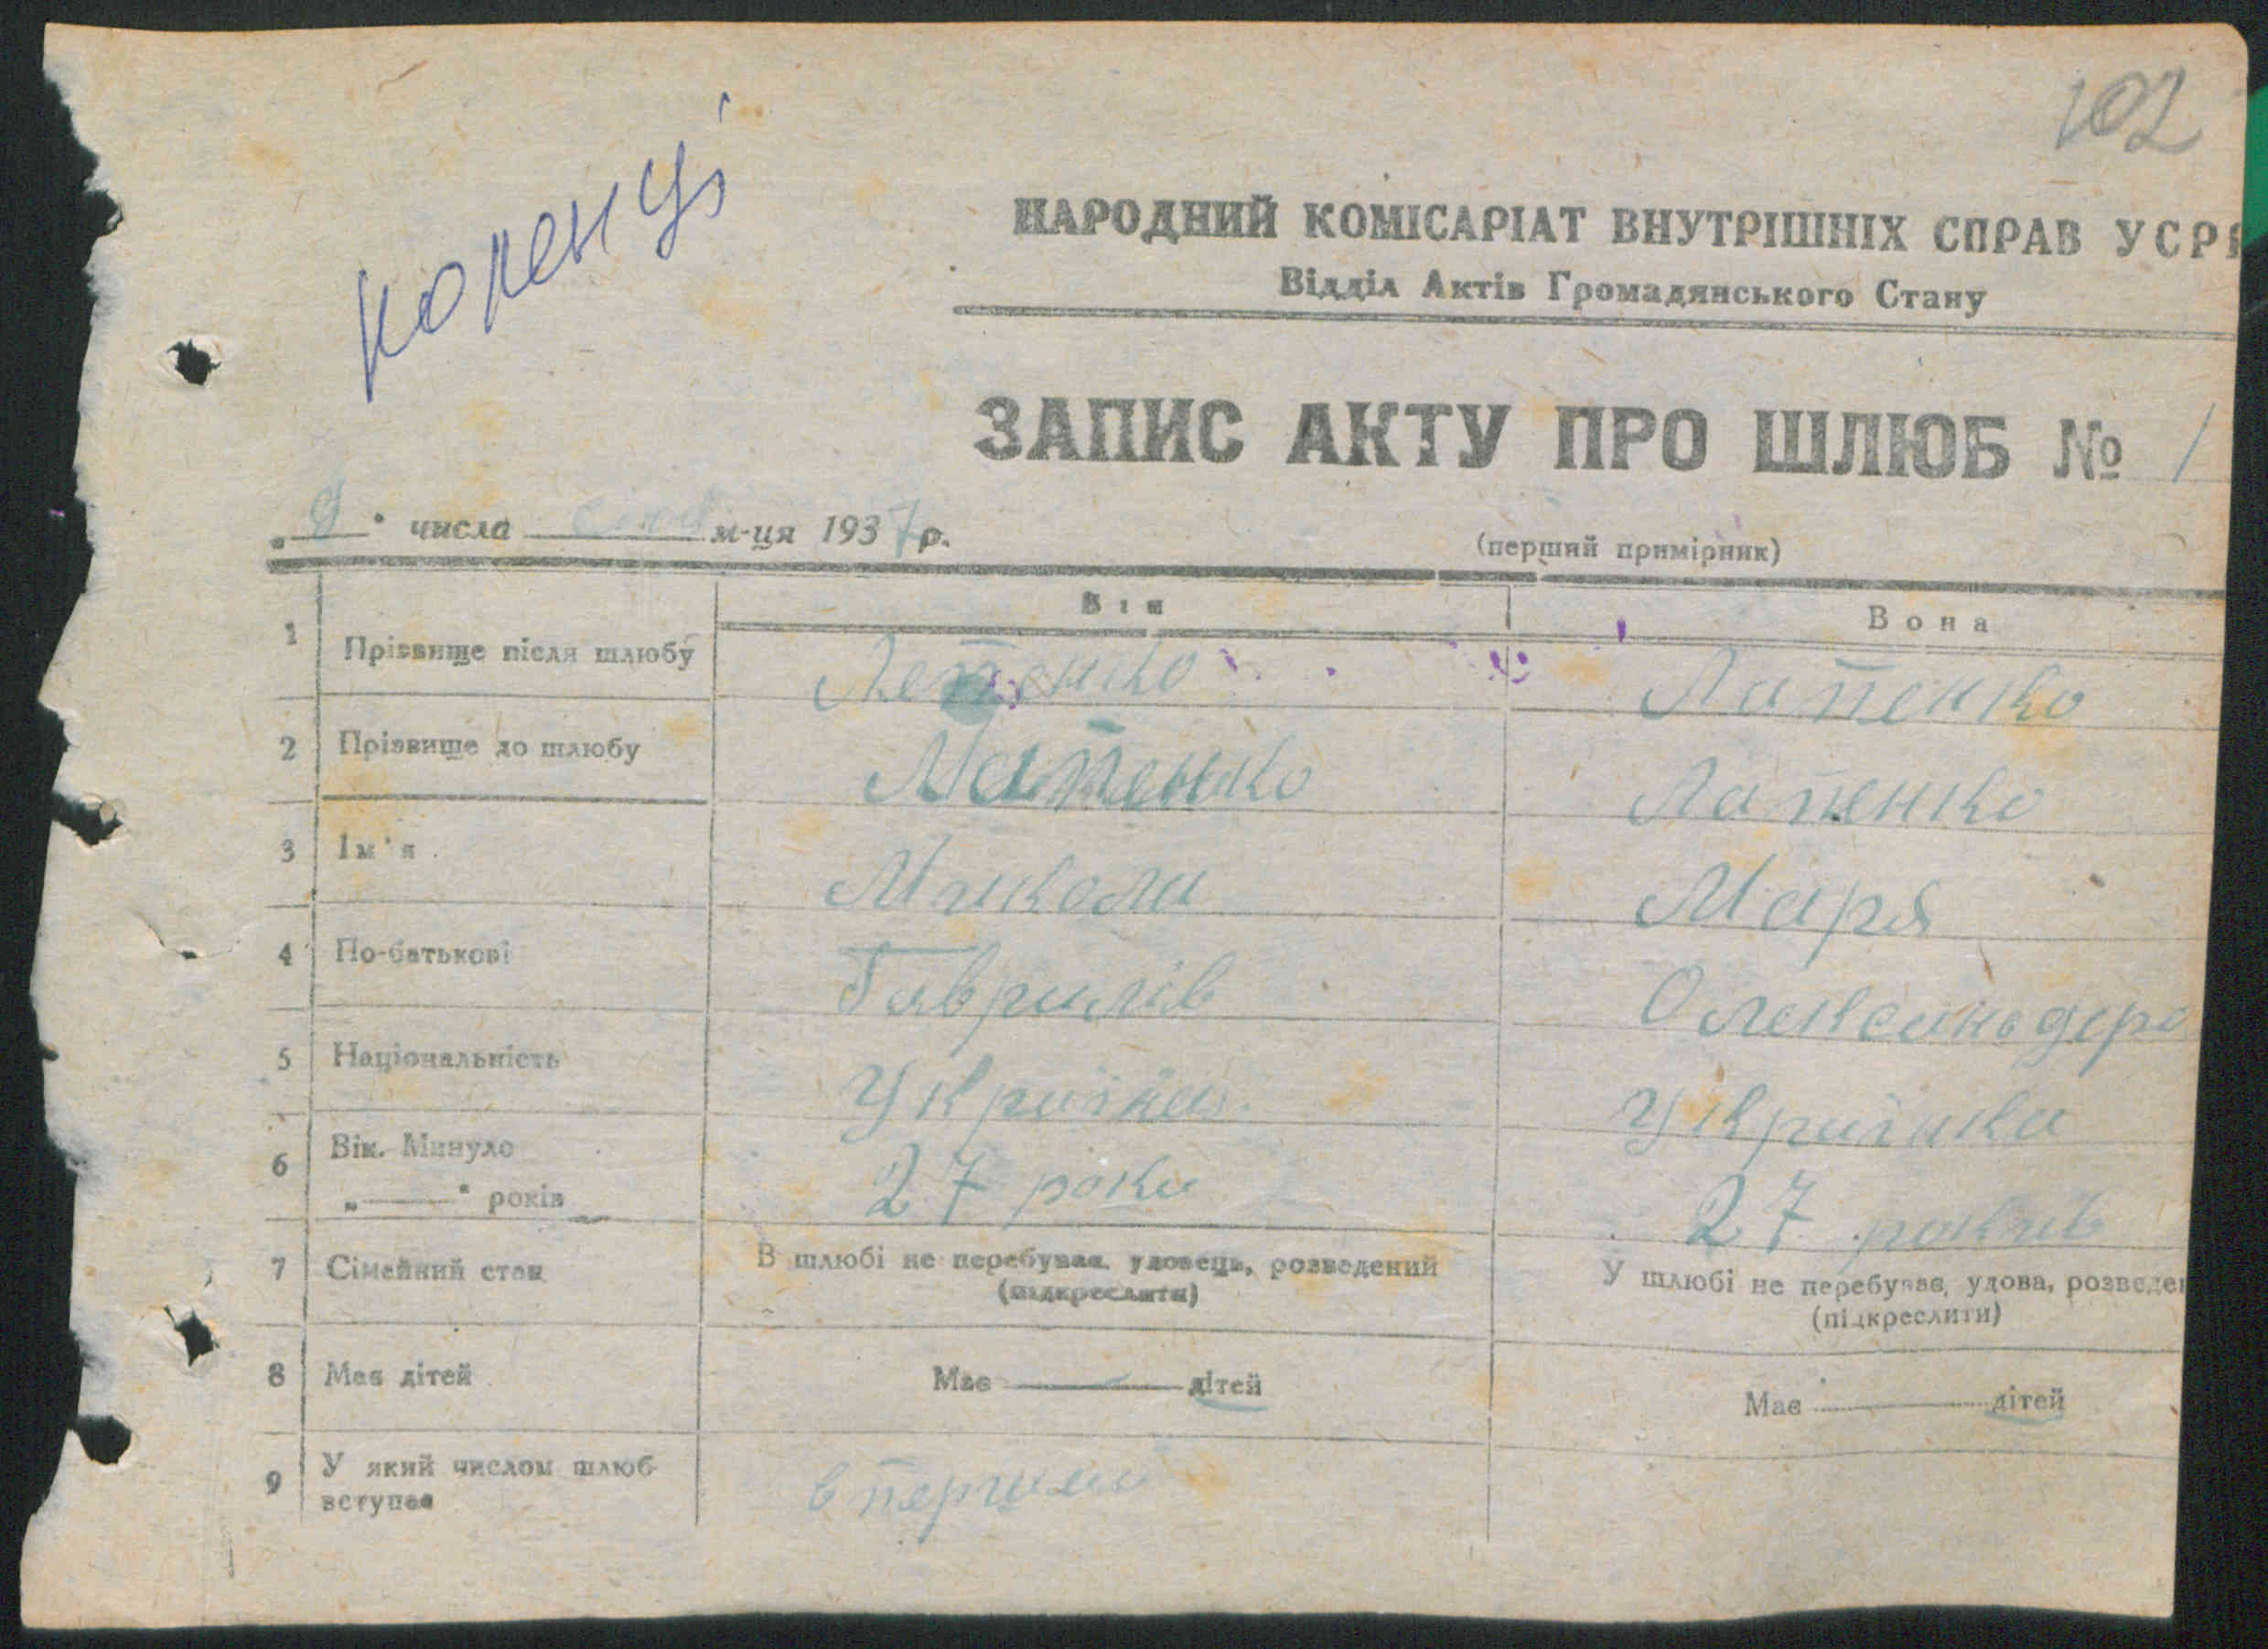 102
Коренці
НАРОДНИЙ КОМІСАРІАТ ВНУТРІШНІХ СПРАВ УСРР
Відділ Актів Громадянського Стану
ЗАПИС АКТУ ПРО ШЛЮБ № 1
„9" числа м-ця 1937 р.
(перший примірник)
Він Вона
1 Прізвище після шлюбу Лапенко Лапенко
2 Прізвище до шлюбу Лапенко Лапенко
3 Ім'я Микола Маря
4 По-батькові Гаврилів Олександро
5 Національність Україна Українка
6 Вік. Минуло „——" років 27 роки 27 років
7 Сімейний стан В шлюбі не перебував, удовець, розведений (підкреслити) У шлюбі не перебував, удова, розведен (підкреслити)
8 Має дітей Має —— дітей Має —— дітей
9 У який числом шлюб вступає в перший